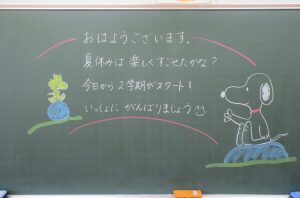 おはようございます.
夏休みは楽しくすごせたかな?
今日から2学期がスタート!
いっしょにがんばりましょう